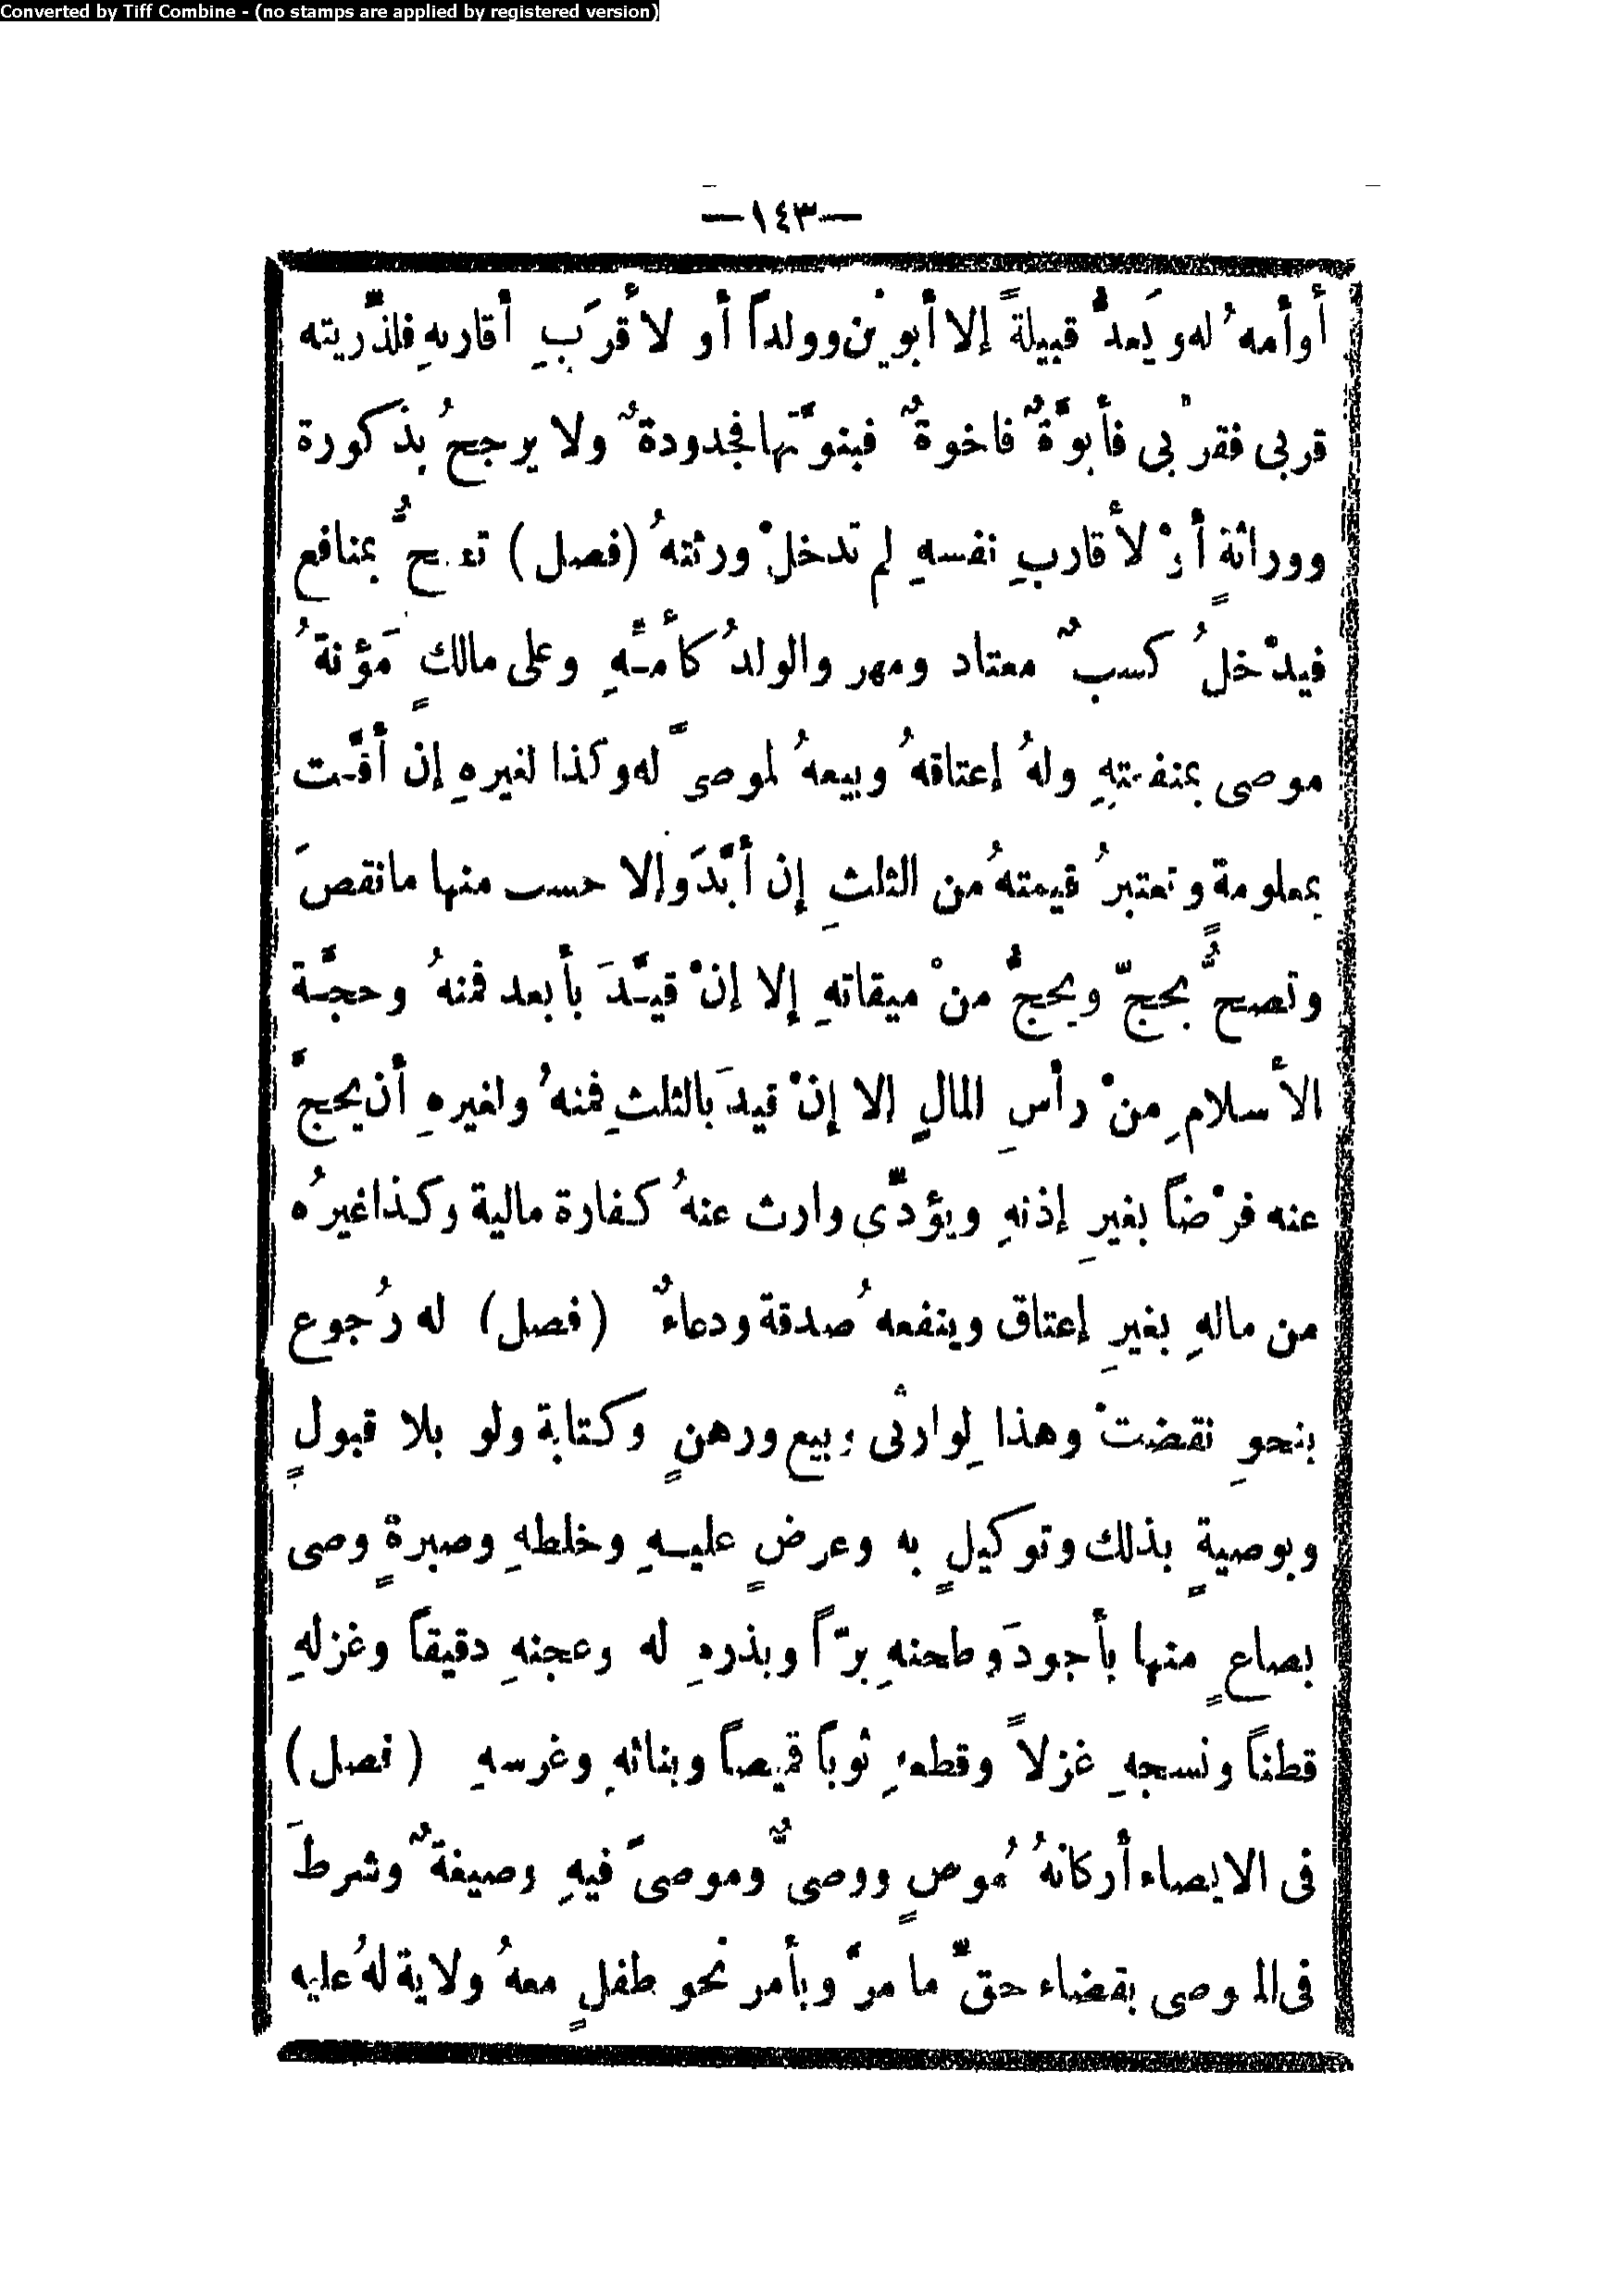 Converted by Tiff Combine - (no stamps are applied by registered version)
—١٤٣—
أو أمهُ له وَيَعدُّ قبيلةً إلا أبويْن وولداً أو لأقرَبِ أقاربهِ فلذّريته
قربى فقرْبى فأبوَّةٌ فاخوةٌ فبنوَّتها فجدودةٌ ولا يرجحُ بذكورة
ووراثةٍ أوْ لأقاربِ نفسهِ لم تدخلْ ورثتهُ (فصل) تصحُّ بمنافع
فيدْخلُ كسبٌ معتاد ومهر والولدُ كأمّهِ وعلى مالكٍ مَؤنةُ
موصى بمنفعتهِ ولهُ إعتاقهُ وبيعهُ لموصىً له وكذا لغيرهِ إن أقّت
بمعلومةٍ وتعتبرُ قيمتهُ من الثلثِ إن أبّدَ وإلا حسب منها ما نقصَ
وتصحُّ بحجّ ويحجُّ منْ ميقاتهِ إلا إنْ قيّدَ بأبعد فمنهُ وحجّة
الأسلامِ منْ رأسِ المالِ إلا إنْ قيدَ بالثلثِ فمنهُ ولغيرهِ أن يحجَّ
عنه فرْضاً بغيرِ إذنهِ ويؤدّى وارث عنهُ كفارة مالية وكذا غيرُه
من مالهِ بغيرِ إعتاق وينفعهُ صدقة ودعاءٌ (فصل) له رُجوع
بنحوِ نقضتْ وهذا لِوارثى وبيع ورهنٍ وكتابة ولو بلا قبولٍ
وبوصيةٍ بذلك وتوكيلٍ به وعرضٍ عليهِ وخلطهِ وصبرةٍ وصى
بصاعٍ منها بأجودَ وطحنهِ برّاً وبذرهِ له وعجنهِ دقيقاً وغزلهِ
قطناً ونسجهِ غزلاً وقطعهِ ثوباً قميصاً وبنائهِ وغرسهِ (فصل)
فى الايصاء أركانهُ مُوصٍ ووصىٌّ وموصىً فيهِ وصيغةٌ وشرطَ
فى الموصى بقضاء حقّ ما مرَّ وبأمر نحو طفلٍ معهُ ولاية لهُ عليه